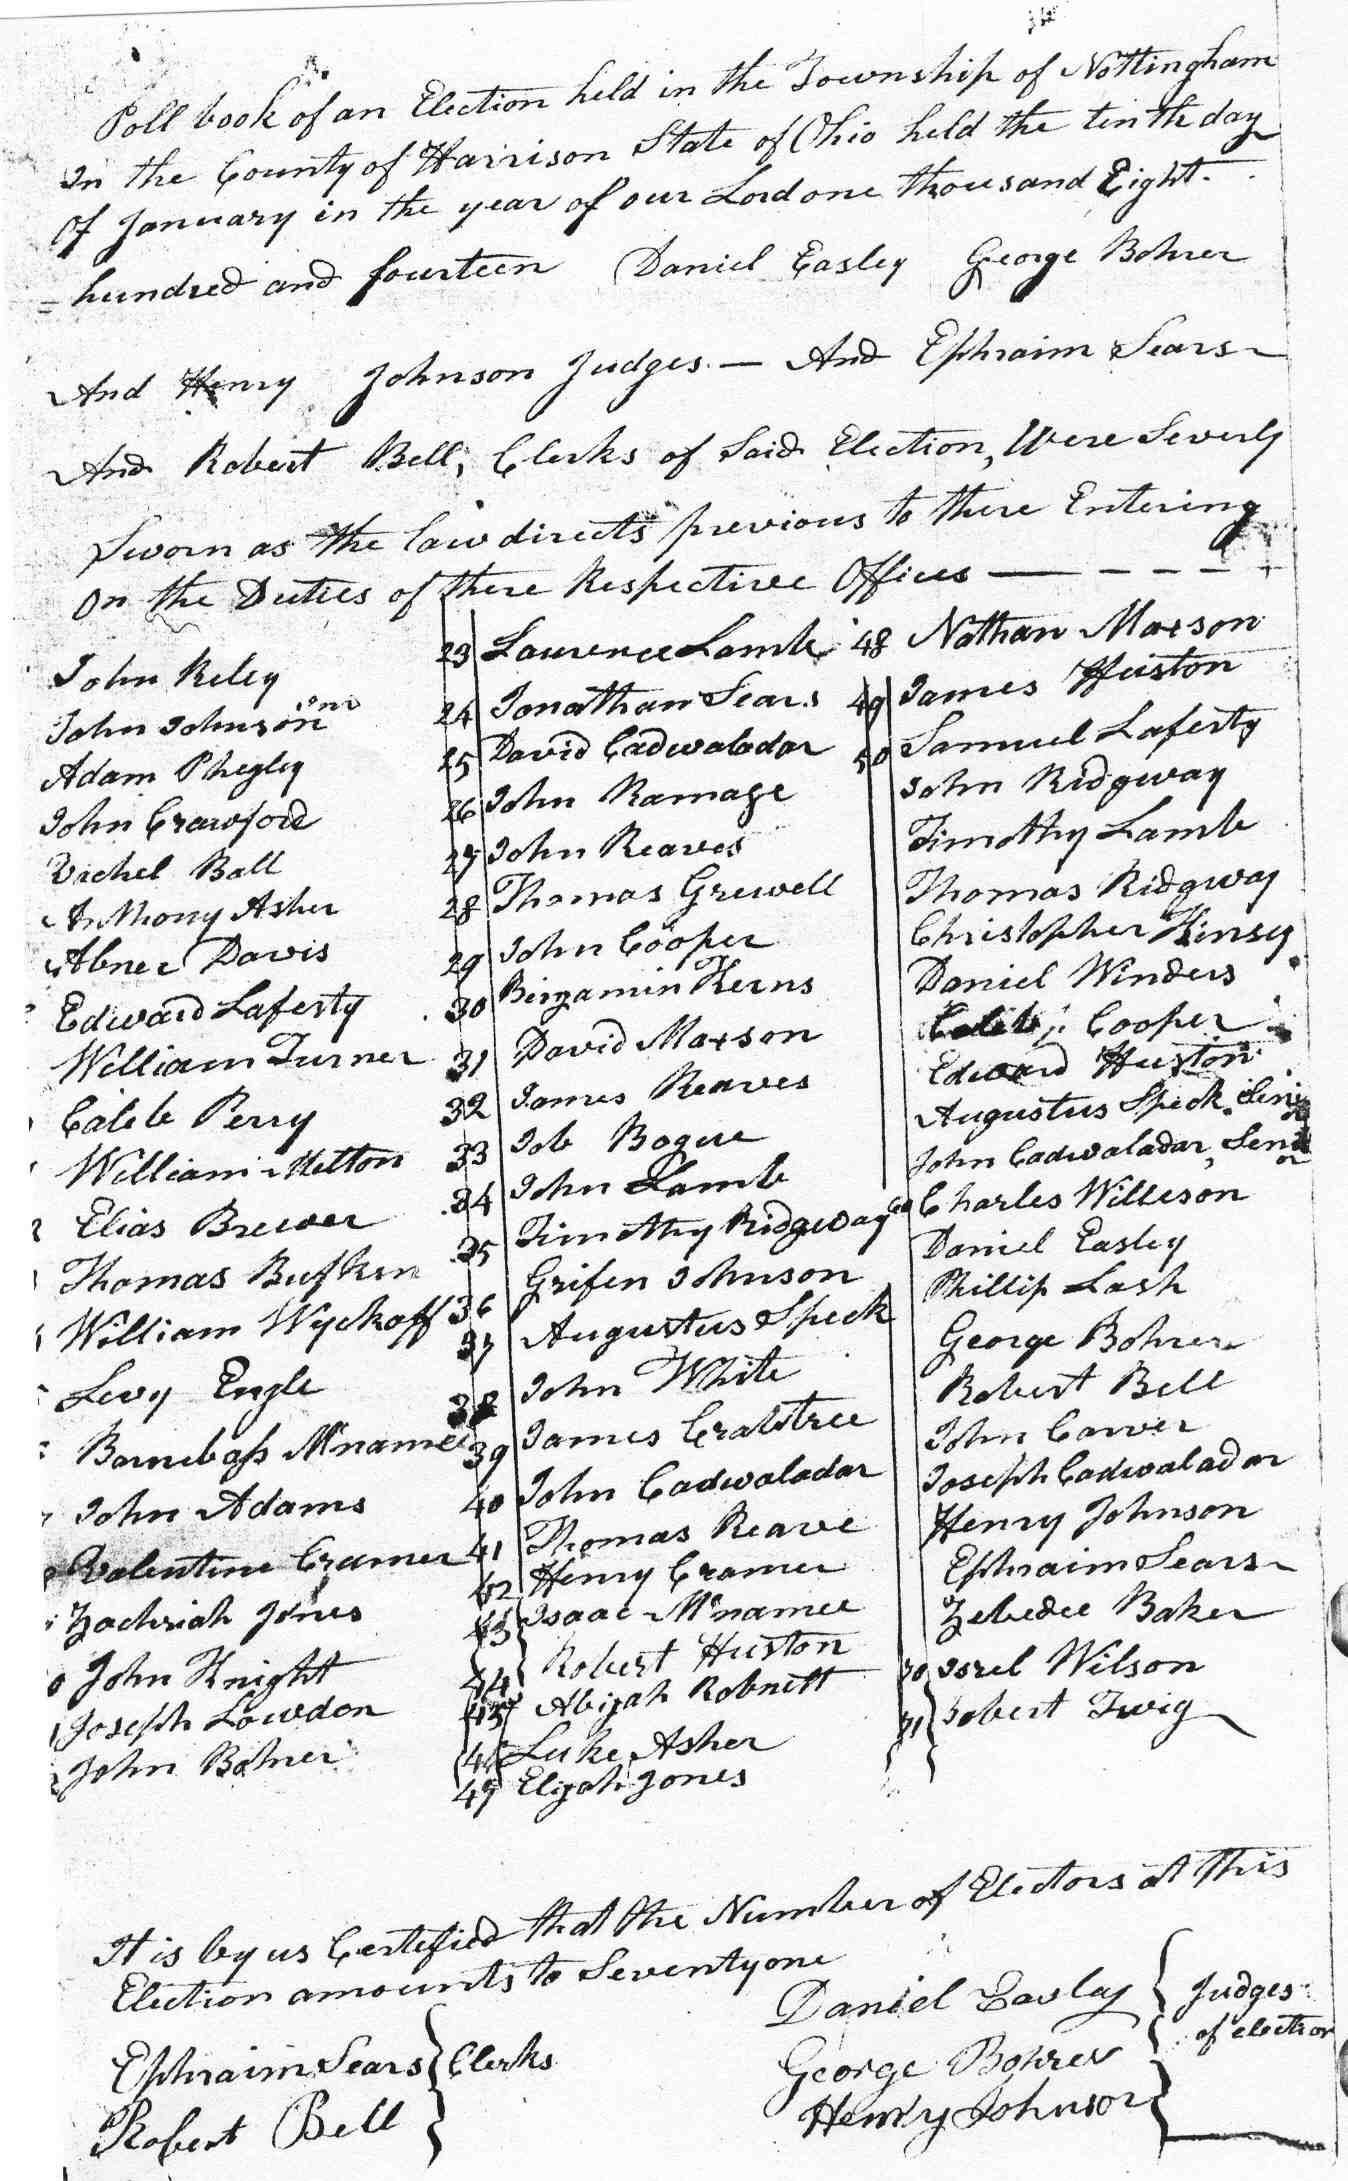 Poll book of an Election held in the Township of Nottingham
In the County of Harrison State of Ohio held the tenth day
Of January in the year of our Lord one thousand Eight-
=hundred and fourteen Daniel Easley George Bohrer
And Henry Johnson Judges — And Ephraim Sears
And Robert Bell, Clerks of Said Election, Were Severly
Sworn as the law directs previous to there Entering
On the Duties of there Respective Offices — - - - -
John Reley
John Johnson
Adam Phegley
John Crawford
Vachel Ball
Anthony Asher
Abner Davis
Edward Laferty
William Turner
Caleb Perry
William Melton
Elias Brewer
Thomas Bufken
William Wyckoff
Levy Engle
Barnebass Mcnamee
John Adams
Valentine Cramer
Zachriah Jones
John Knight
Joseph Lowdon
John Bohrer
23 Laurence Lamb
24 Jonathan Sears
25 David Cadwalader
26 John Ramage
27 John Reaves
28 Thomas Grewell
29 John Cooper
30 Benjamin Kerns
31 David Maxson
32 James Reaves
33 Job Bogue
34 John Lamb
35 Timothy Ridgway
36 Grifen Johnson
37 Augustus Speck
38 John White
39 James Crabtree
40 John Cadwalader
41 Thomas Reave
42 Henry Cramer
43 Isaac Mcnamee
44 Robert Huston
45 Abijah Robnett
46 Luke Asher
47 Elijah Jones
48 Nathan Maxson
49 James Huston
50 Samuel Laferty
John Ridgway
Timothy Lamb
Thomas Ridgway
Christopher Kinsey
Daniel Winders
Caleb Cooper
Edward Huston
Augustus Speck, Sen
John Cadwalader, Senior
60 Charles Willeson
Daniel Easley
Phillip Lash
George Bohrer
Robert Bell
John Carver
Joseph Cadwalader
Henry Johnson
Ephraim Sears
Zebedee Baker
70 Isrel Wilson
71 Robert Twig
It is by us Certified that the Number of Electors at this
Election amounts to Seventy one
Ephraim Sears Clerks
Robert Bell
Daniel Easley Judges
of election
George Bohrer
Henry Johnson